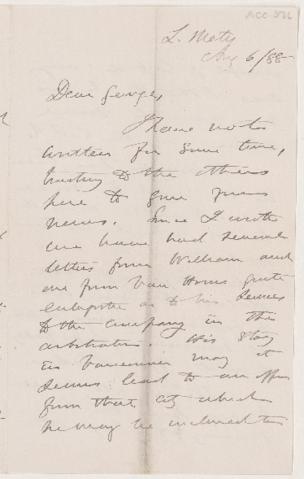 L. Matz
Aug 6/88
Dear George,
I have not
written for some time,
trusting to the others
here to give you
news. Since I wrote
we have had several
letters from William and
one from Van Horne quite
as to his services
to the company in the
arbitration. His stay
in Vancouver may it
seems lead to an offer
from that city which
he may be inclined to